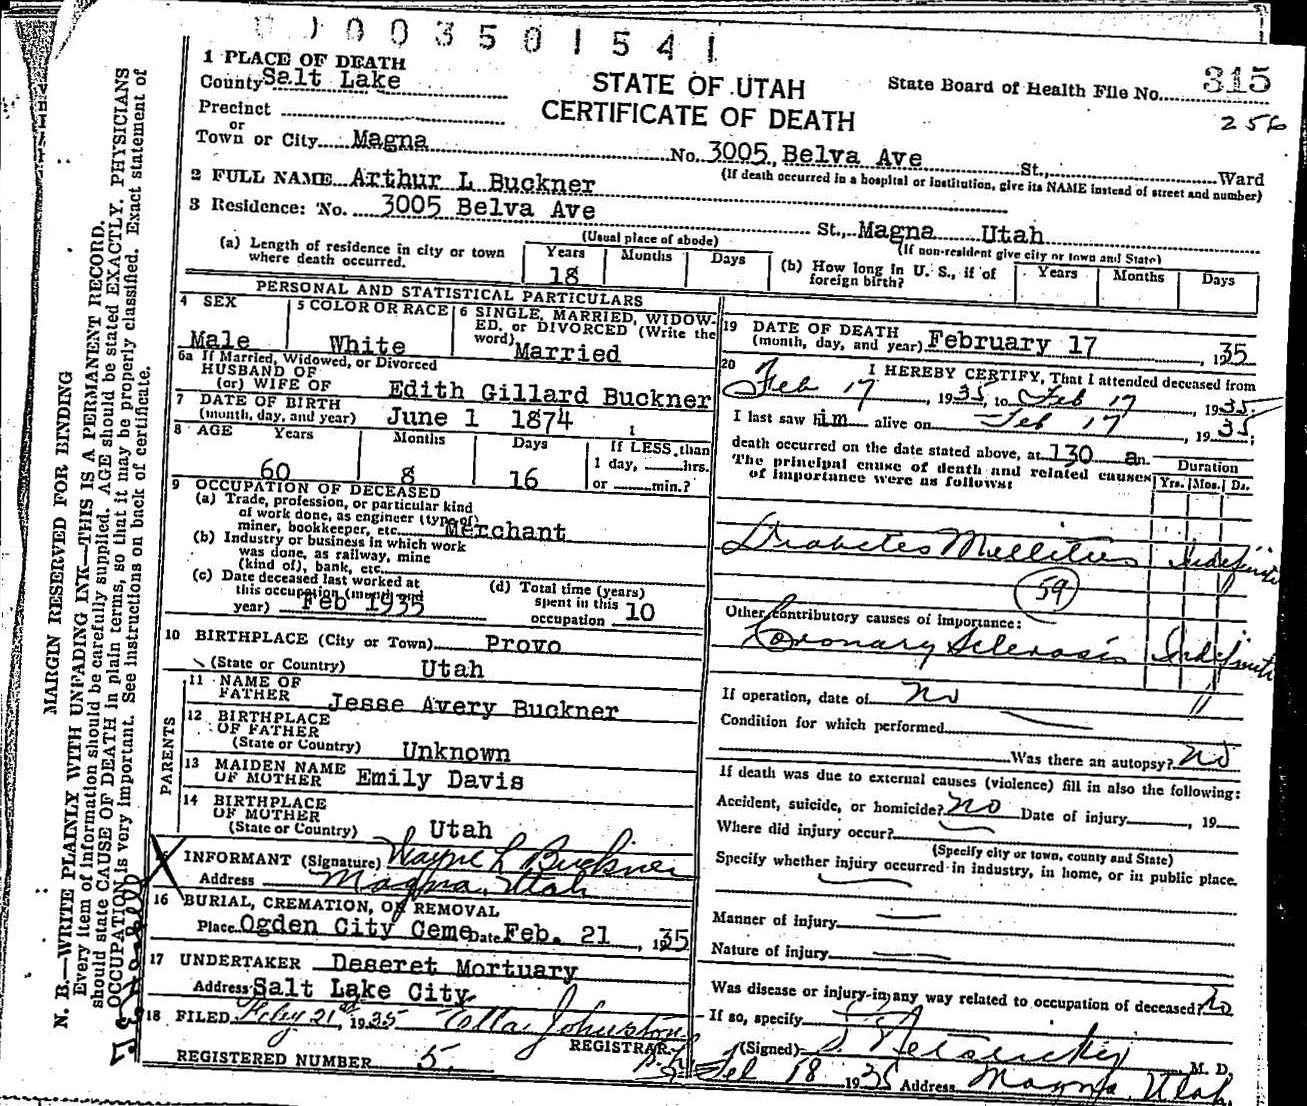 0 0 0 0 3 5 0 1 5 4 1
1 PLACE OF DEATH
County Salt Lake
STATE OF UTAH
CERTIFICATE OF DEATH
State Board of Health File No. 315
256
Precinct
or
Town or City Magna No. 3005 Belva Ave St., Ward
(If death occurred in a hospital or institution, give its NAME instead of street and number)
2 FULL NAME Arthur L Buckner
3 Residence: No. 3005 Belva Ave St., Magna Utah
(Usual place of abode) (If non-resident give city or town and State)
(a) Length of residence in city or town where death occurred. Years 18 Months Days
(b) How long in U. S., if of foreign birth? Years Months Days
PERSONAL AND STATISTICAL PARTICULARS
4 SEX Male
5 COLOR OR RACE White
6 SINGLE, MARRIED, WIDOWED, or DIVORCED (Write the word) Married
6a If Married, Widowed, or Divorced
HUSBAND OF
(or) WIFE OF Edith Gillard Buckner
7 DATE OF BIRTH
(month, day, and year) June 1 1874
8 AGE Years 60 Months 8 Days 16
If LESS than
1 day, hrs.
or min.?
9 OCCUPATION OF DECEASED
(a) Trade, profession, or particular kind
of work done, as engineer (type of)
miner, bookkeeper, etc. Merchant
(b) Industry or business in which work
was done, as railway, mine
(kind of), bank, etc.
(c) Date deceased last worked at
this occupation (month and
year) Feb 1935
(d) Total time (years)
spent in this
occupation 10
10 BIRTHPLACE (City or Town) Provo
(State or Country) Utah
PARENTS
11 NAME OF
FATHER Jesse Avery Buckner
12 BIRTHPLACE
OF FATHER
(State or Country) Unknown
13 MAIDEN NAME
OF MOTHER Emily Davis
14 BIRTHPLACE
OF MOTHER
(State or Country) Utah
INFORMANT (Signature) Wayne L Buckner
Address Magna, Utah
16 BURIAL, CREMATION, OR REMOVAL
Place Ogden City Ceme Date Feb. 21, 1935
17 UNDERTAKER Deseret Mortuary
Address Salt Lake City
18 FILED Feby 21st, 1935 Etta Johnston
REGISTRAR
REGISTERED NUMBER 5.
19 DATE OF DEATH
(month, day, and year) February 17, 1935
20 I HEREBY CERTIFY, That I attended deceased from
Feb 17, 1935, to Feb 17, 1935;
I last saw him alive on Feb 17, 1935;
death occurred on the date stated above, at 130 a m.
The principal cause of death and related causes
of importance were as follows:
Duration
Yrs. Mos. Ds.
Diabetes Mellitus Indefinite
59
Other contributory causes of importance:
Coronary Sclerosis Indefinite
If operation, date of no
Condition for which performed
Was there an autopsy? no
If death was due to external causes (violence) fill in also the following:
Accident, suicide, or homicide? no Date of injury, 19
Where did injury occur?
(Specify city or town, county and State)
Specify whether injury occurred in industry, in home, or in public place.
Manner of injury
Nature of injury
Was disease or injury in any way related to occupation of deceased? no
If so, specify
(Signed) M. D.
Feb 18 1935 Address Magna, Utah.
MARGIN RESERVED FOR BINDING
N. B.—WRITE PLAINLY WITH UNFADING INK—THIS IS A PERMANENT RECORD.
Every item of information should be carefully supplied. AGE should be stated EXACTLY. PHYSICIANS
should state CAUSE OF DEATH in plain terms, so that it may be properly classified. Exact statement of
OCCUPATION is very important. See instructions on back of certificate.